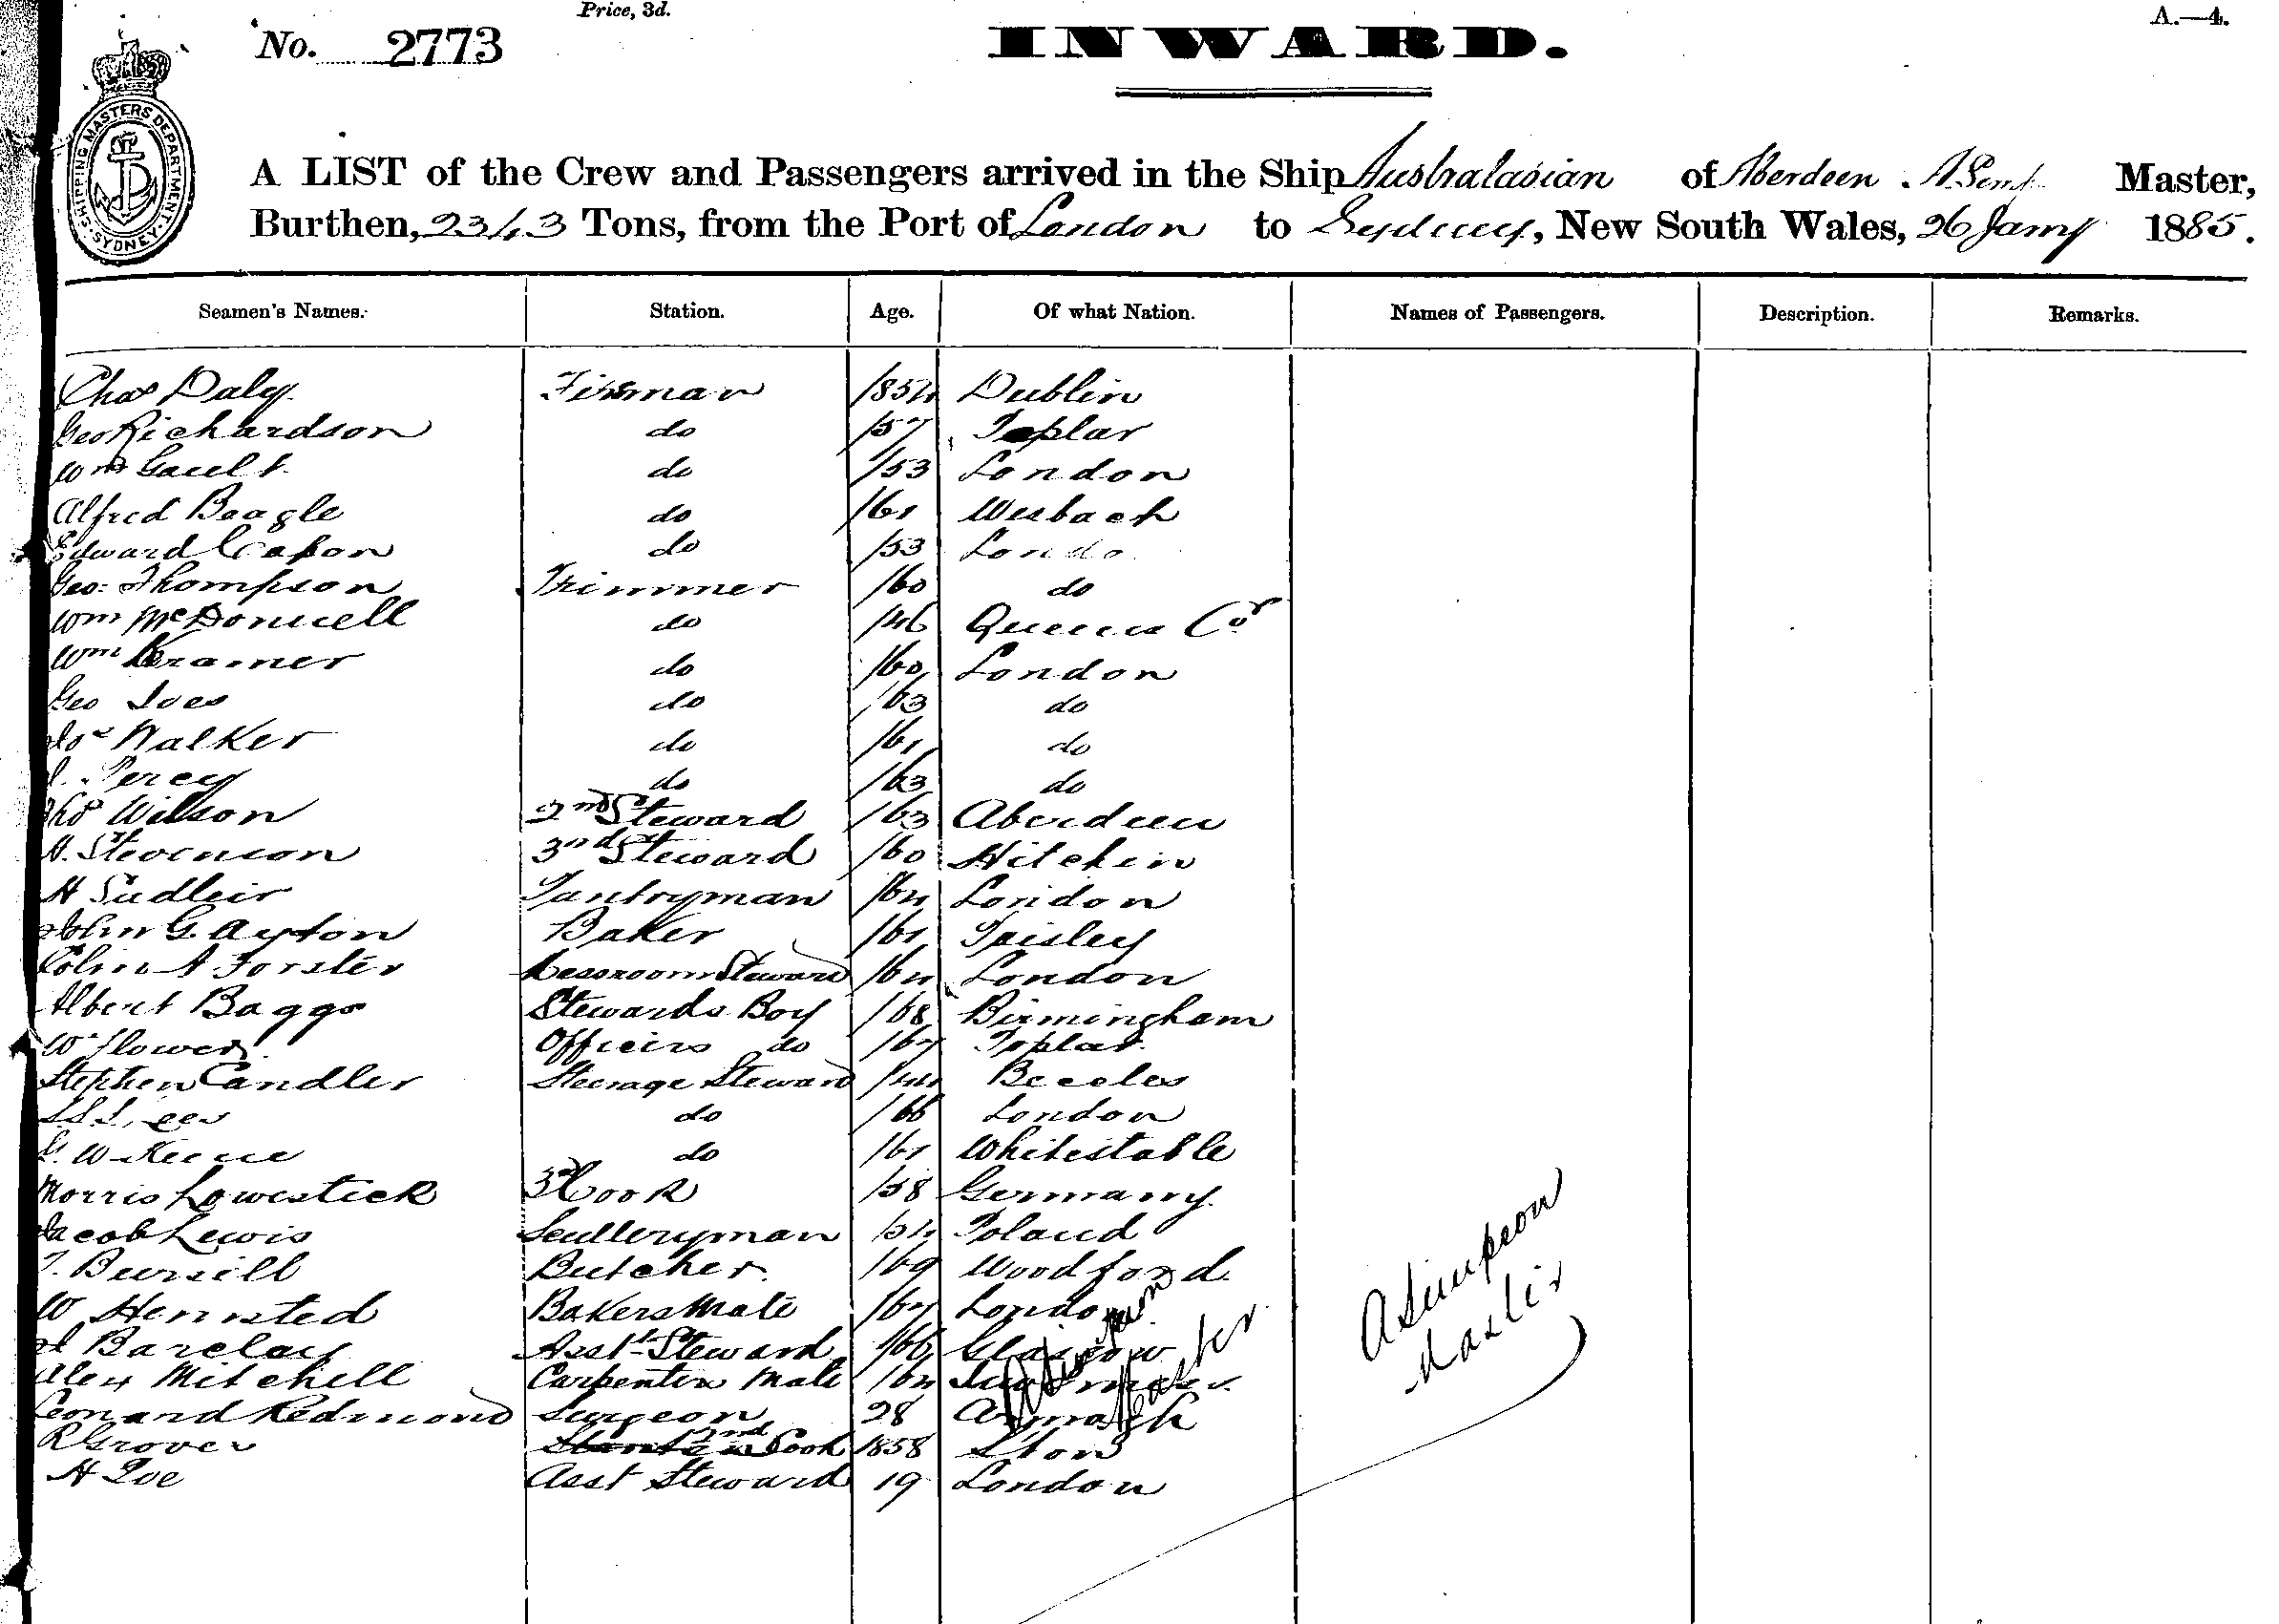 Price, 3d.
A.—4.
No. 2773
INWARD.
SHIPPING MASTERS DEPARTMENT · SYDNEY ·
A LIST of the Crew and Passengers arrived in the Ship Australasian of Aberdeen A Master,
Burthen, 2343 Tons, from the Port of London to Sydney, New South Wales, 26 Jany 1885.
Seamen's Names. Station. Age. Of what Nation. Names of Passengers. Description. Remarks.
Chas Daly Fireman 1854 Dublin
Geo Richardson do /57 Poplar
Wm Gault do /53 London
Alfred Beagle do /61 Wisbach
Edward Capon do /53 Londo
Geo: Thompson Trimmer /60 do
Wm McDonnell do /46 Queens Co
Wm Kramer do /60 London
Geo Ives do /63 do
Jos Walker do /61 do
Percy do /63 do
Thos Wilson 2nd Steward /63 Aberdeen
Stevenson 3rd Steward /60 Hitchin
H Sudleir Pantryman /64 London
John G. Ayton Baker /61 Paisley
Colin A Forster Messroom Steward /64 London
Albert Baggs Stewards Boy /68 Birmingham
W Flower Officers do /67 Poplar
Stephen Candler Steerage Steward /44 Beccles
Lee do /66 London
G. W Keene do /61 Whitestable
Morris Lowestick 3d Cook /58 Germany
Jacob Lewis Sculleryman /54 Poland
T. Bursill Butcher /69 Woodford
W Hensted Bakers Mate /67 London
J Barclay Asst Steward /66 Glasgow
Alex Mitchell Carpenters Mate /64
Leonard Redmond Surgeon 28 Armagh
R Grover 2nd Cook 1858
H Poe Asst Steward 19 London
A Simpson
Master
A Simpson
Master